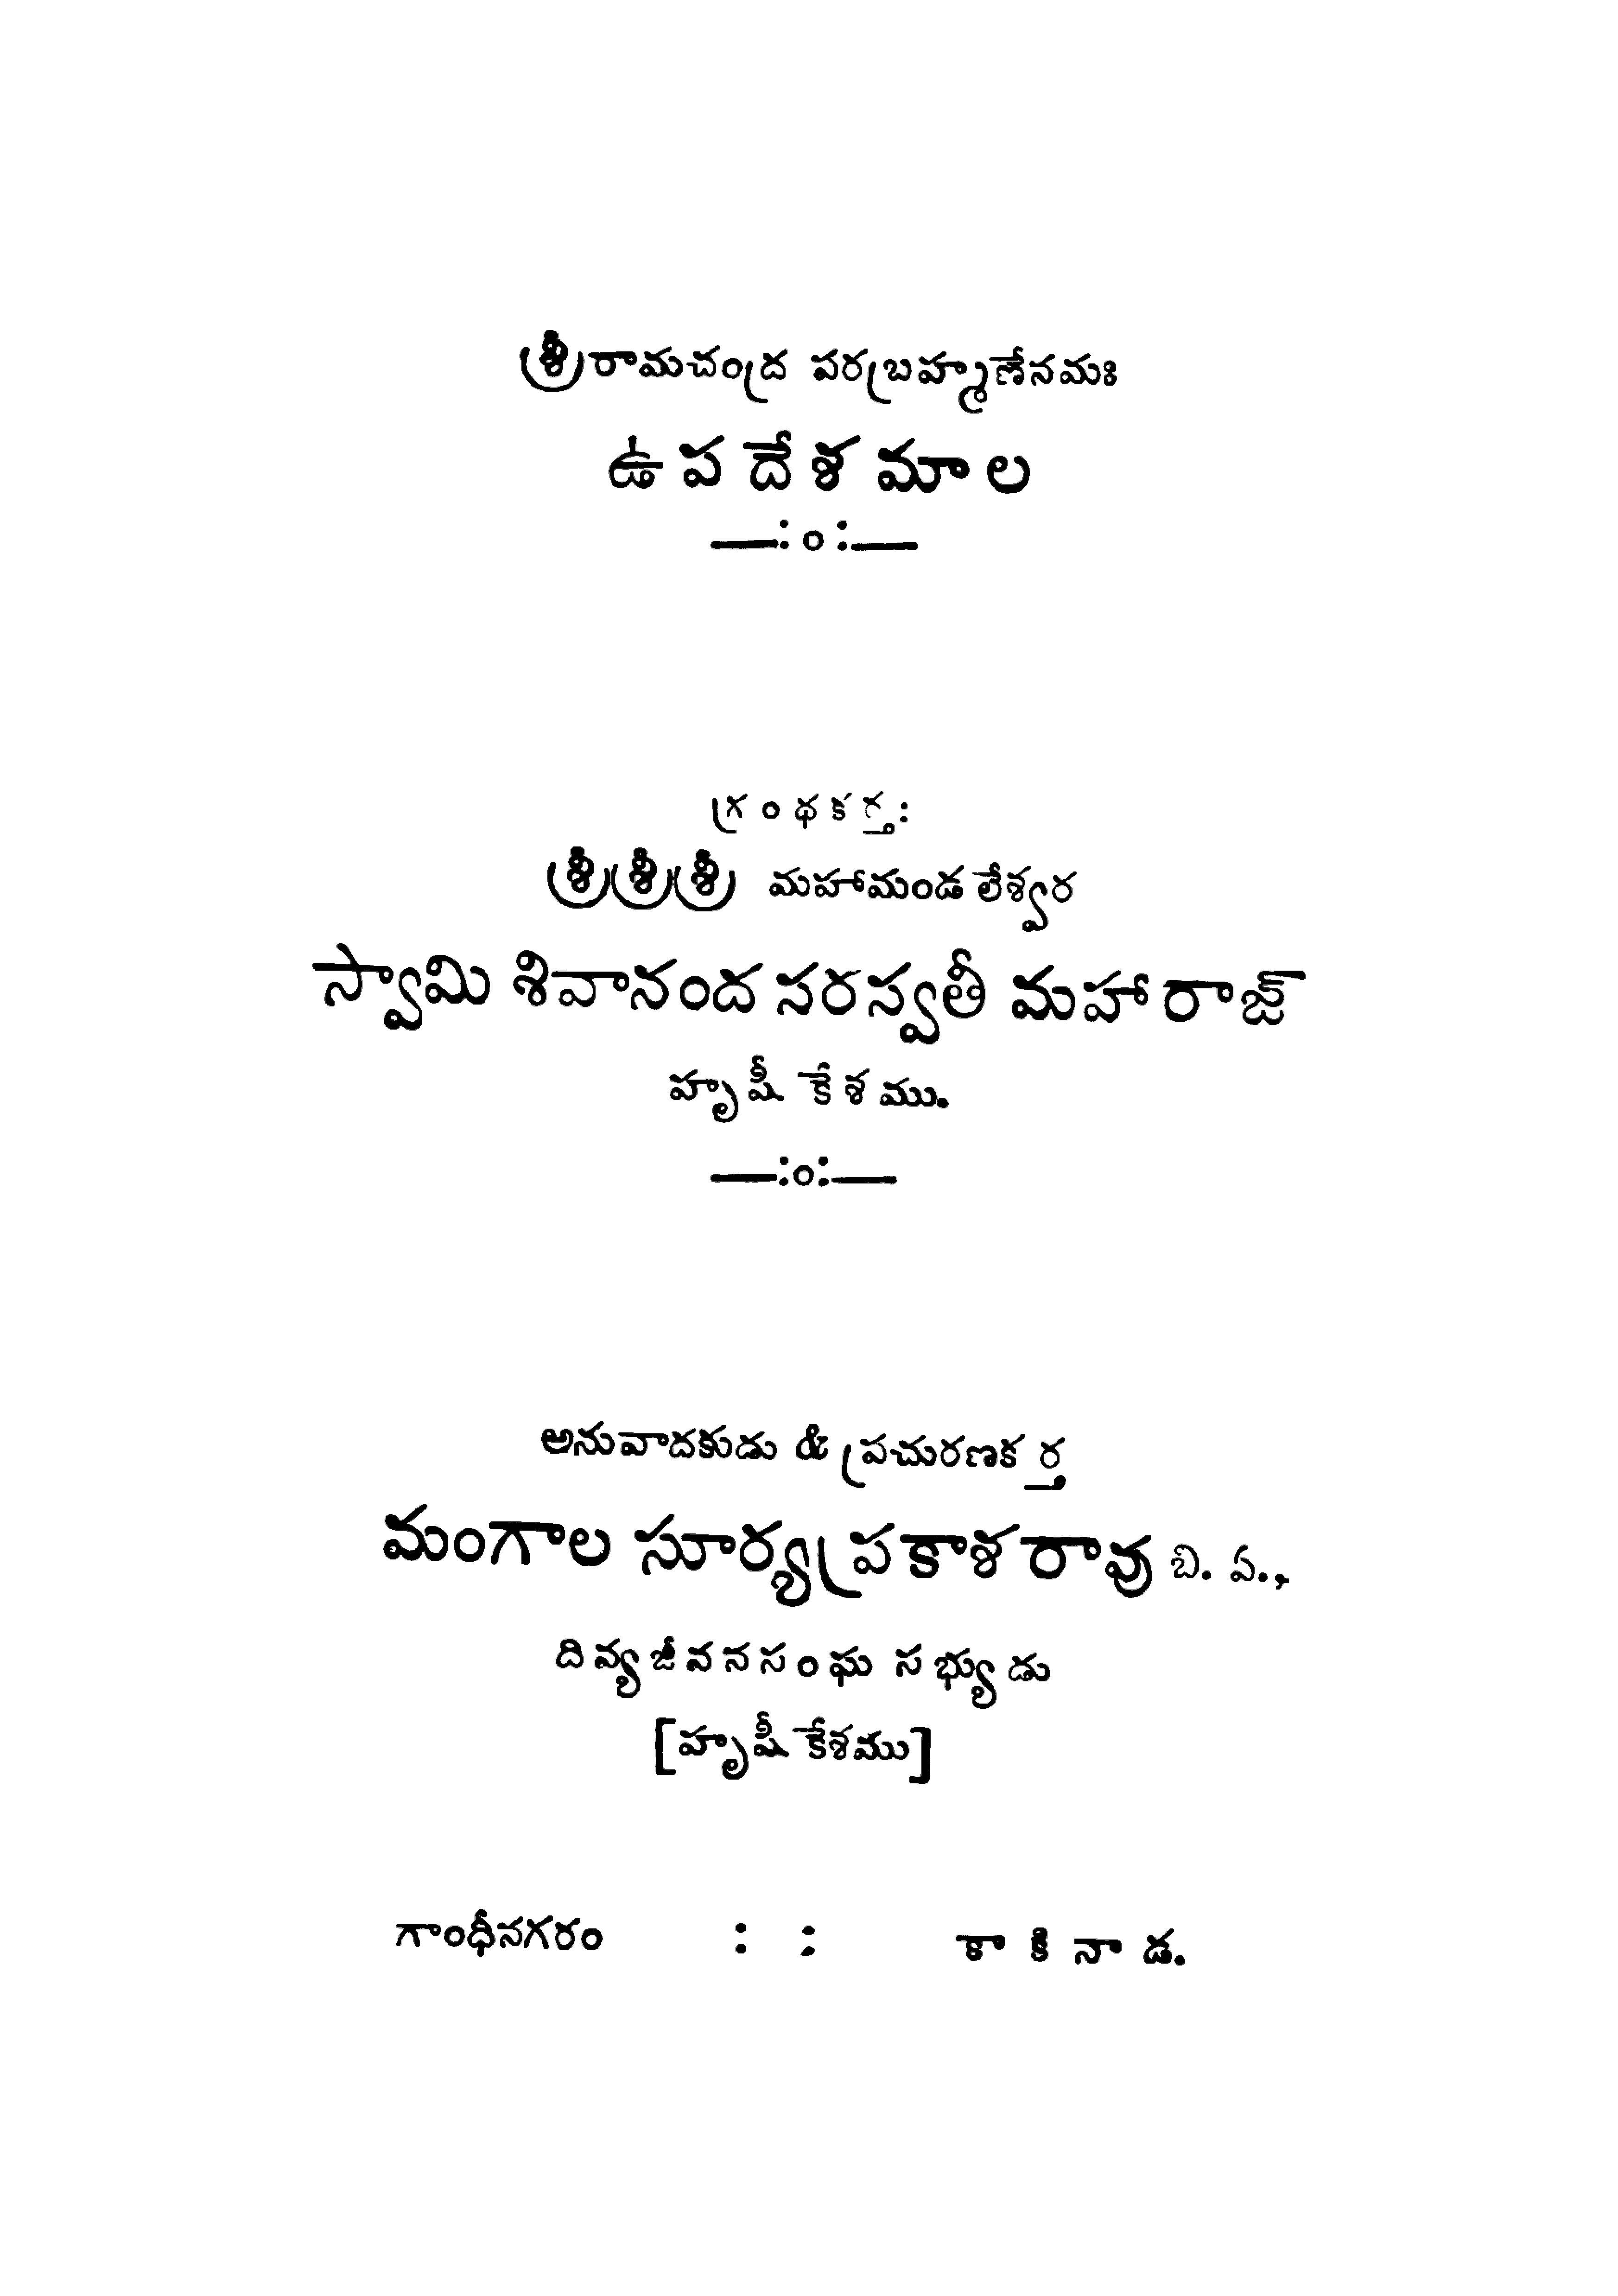 శ్రీరామచంద్ర పరబ్రహ్మణేనమః
ఉపదేశమాల
—:o:—
గ్రంథకర్త:
శ్రీశ్రీశ్రీ మహామండలేశ్వర
స్వామి శివానంద సరస్వతీ మహారాజ్
హృషీకేశము.
—:o:—
అనువాదకుడు & ప్రచురణకర్త
మంగాల సూర్యప్రకాశరావు బి. ఏ.,
దివ్యజీవనసంఘ సభ్యుడు
[హృషీకేశము]
గాంధీనగరం : : కాకినాడ.